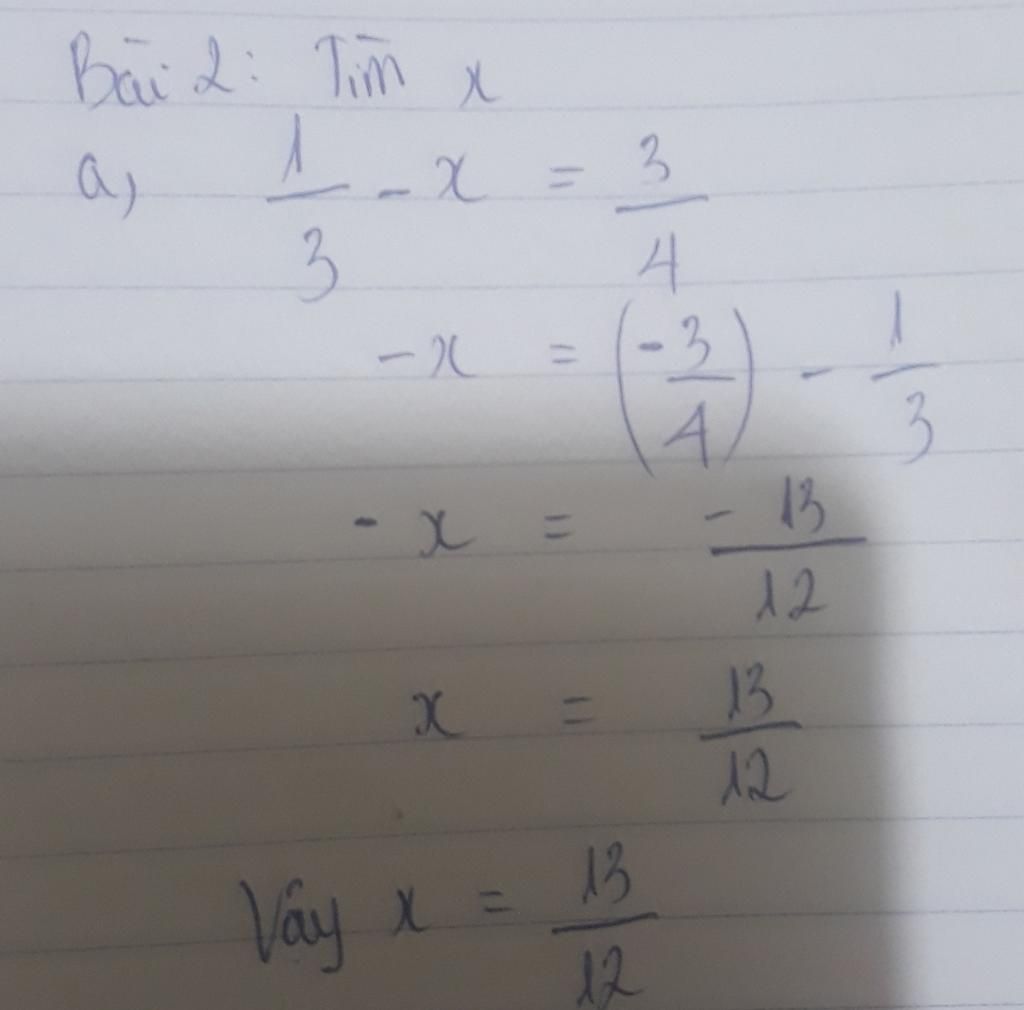 Bài 2: Tìm x
a, 1/3 - x = 3/4
- x = (-3/4) - 1/3
- x = -13/12
x = 13/12
Vậy x = 13/12